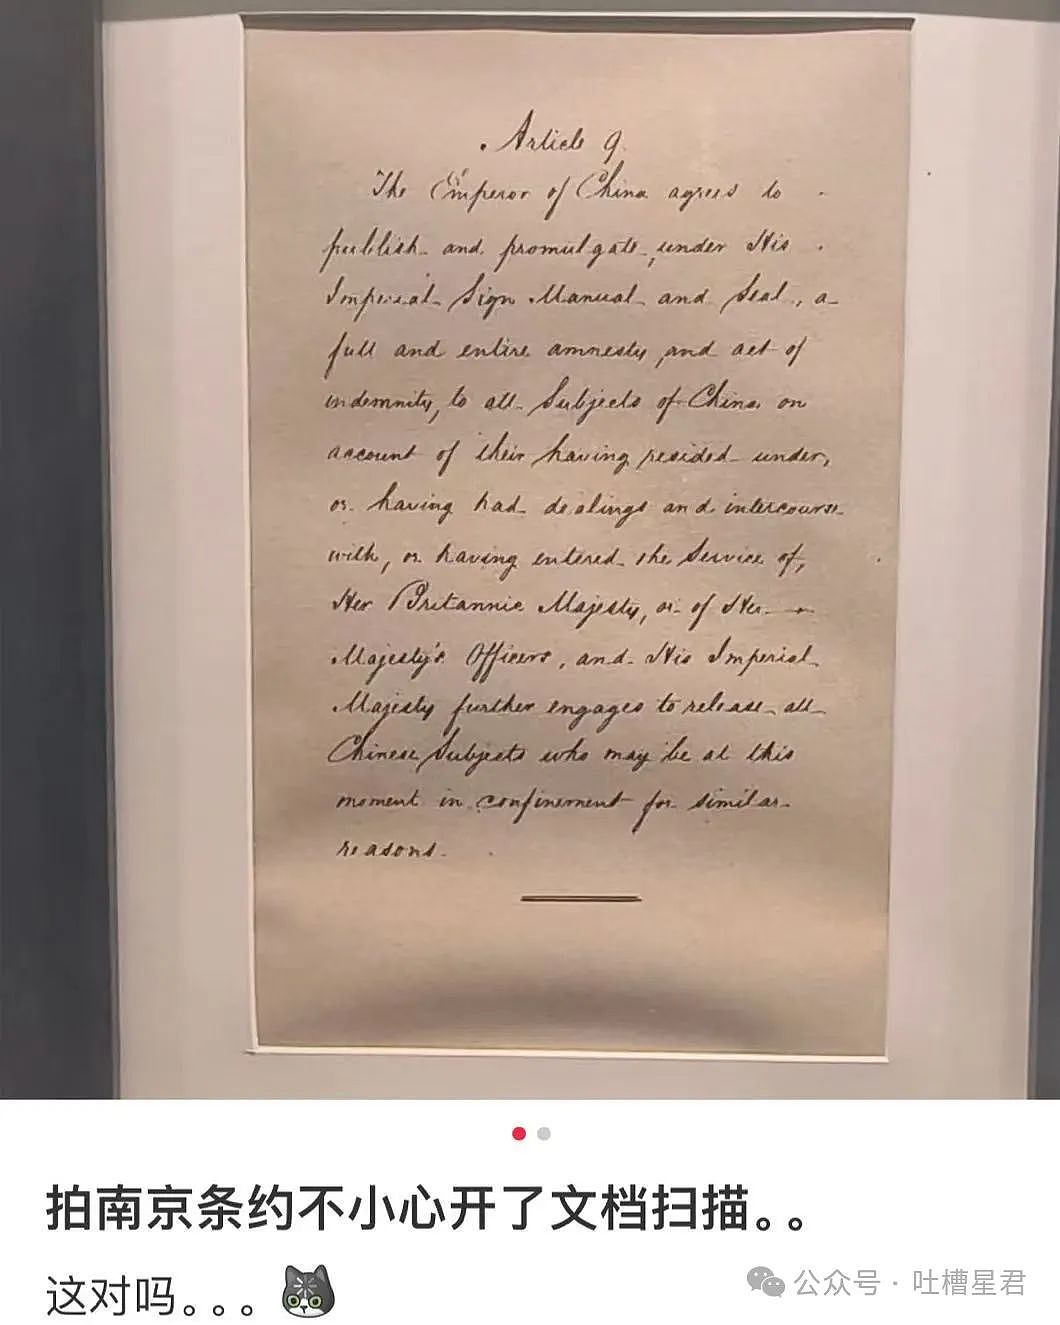 Article 9.
The Emperor of China agrees to
publish and promulgate, under His
Imperial Sign Manual and Seal, a
full and entire amnesty and act of
indemnity, to all Subjects of China on
account of their having resided under,
or having had dealings and intercourse
with, or having entered the Service of,
Her Britannic Majesty, or of Her
Majesty's Officers, and His Imperial
Majesty further engages to release all
Chinese Subjects who may be at this
moment in confinement for similar
reasons.
拍南京条约不小心开了文档扫描。。
这对吗。。。
公众号 · 吐槽星君